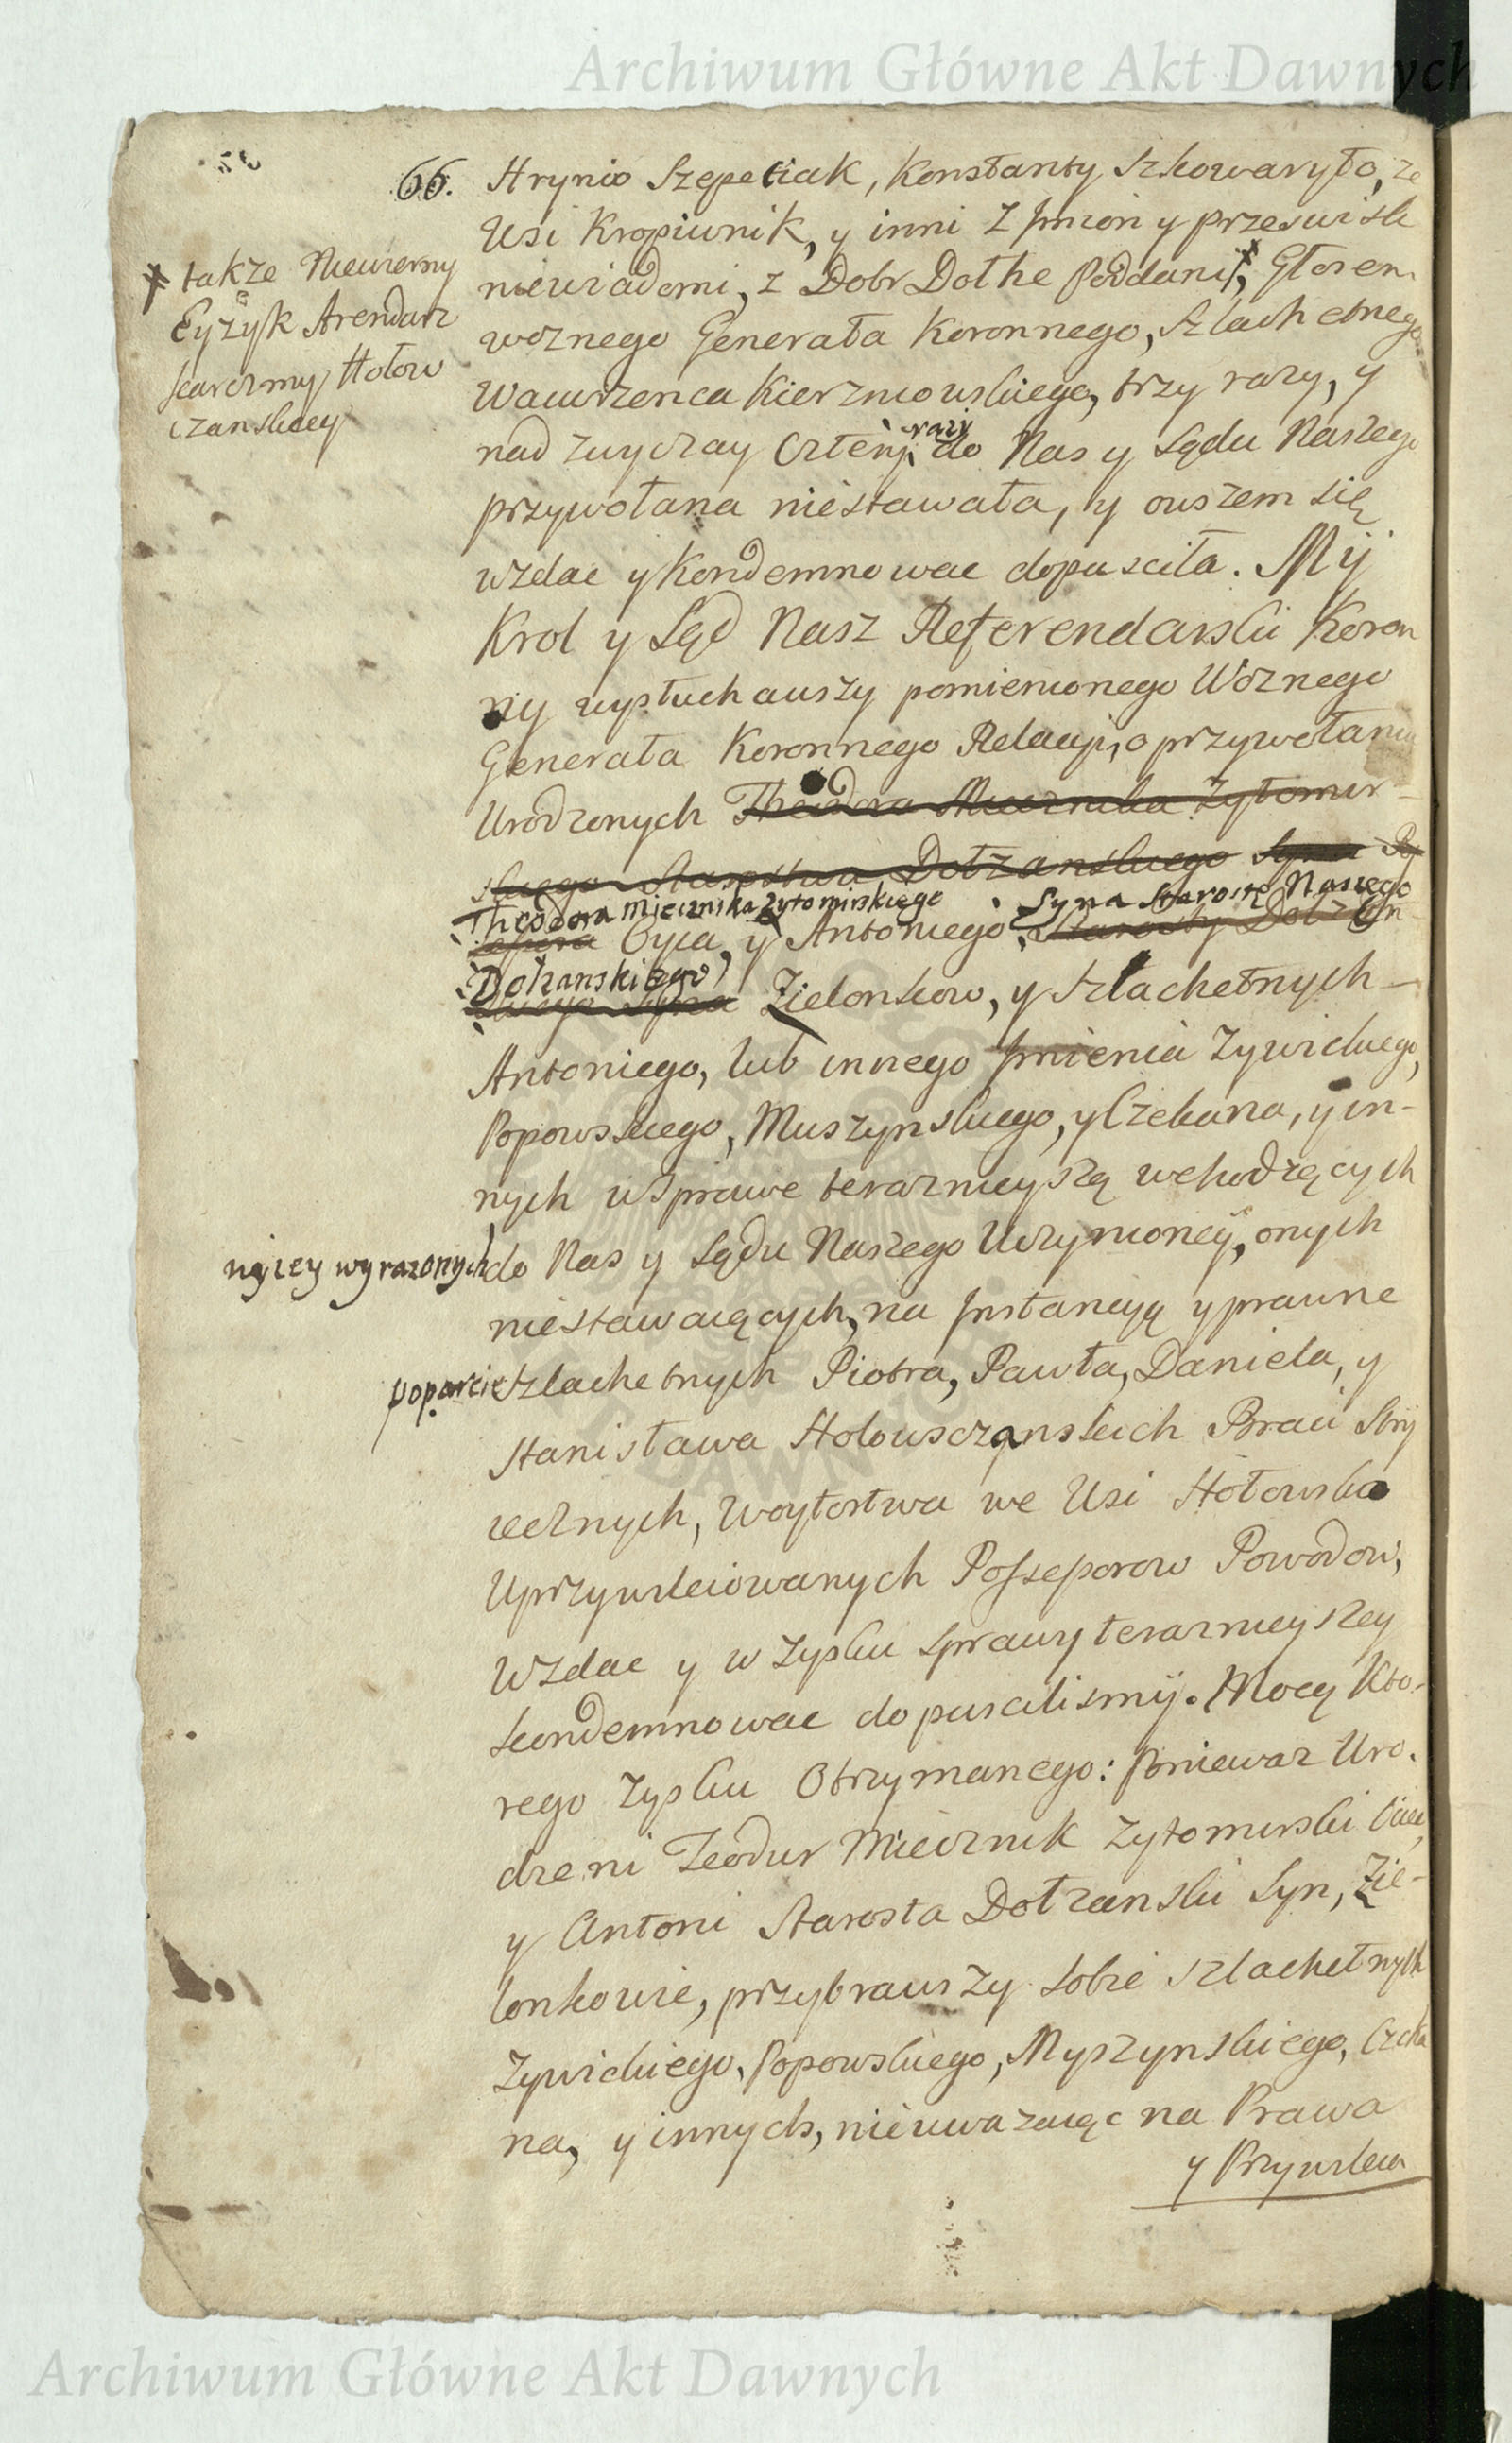 Archiwum Główne Akt Dawnych
66. Hrynio Szepetiak, Konstanty Szkowaryło, ze
Wsi Kropiwnik, y inni z Jmion y przeswisk
niewiadomi, z Dobr Dołhe Poddani, Głosem
woznego Generała Koronnego, Szlachetnego
Wawrzenca Kierznowskiego, trzy razy, y
nad zwyczay Czterÿ razy do Nas y Sądu Naszego
przywołana niestawała, y owszem się
wzdac y Kondemnowac dopusciła. Mÿ
Krol y Sąd Nasz Referendarski Koron
ny wysłuchawszy pomienionego Woznego
Generała Koronnego Relacyi, o przywołaniu
Urodzonych Theodora Miecznika Zytomir-
skiego Starostwa Dołzanskiego Syna
Theodora Miecznika Zytomirskiego Syna Starostę Naszego
Oyca, y Antoniego, Starosty Dołzan-
Dołzanskiego
skiego Syna Zielonkow, y Szlachetnych
Antoniego, lub innego Jmienia Zywickiego,
Popowskiego, Muszynskiego, y Czekana, y in-
nych w Sprawe teraznieyszą wchodzących
niżey wyrazonych do Nas y Sądu Naszego Uczynioneÿ, onych
niestawaiących, na Jnstancyą y prawne
poparcie Szlachetnych Piotra, Pawła, Daniela, y
Stanisława Hołowsczanskich Braci Stry
iecznych, Woytostwa we Wsi Hołowsko
Uprzywileiowanych Possessorow Powodow,
Wzdac y w Zysku Sprawy teraznieyszey
kondemnowac dopuscilismÿ. Mocą Kto-
rego Zysku Otrzymanego: Poniewaz Uro-
dzeni Teodor Miecznik Zytomirski Ociec,
y Antoni Starosta Dołzanski Syn, Zie-
lonkowie, przybrawszy sobie Szlachetnych
Zywickiego, Popowskiego, Myszynskiego, Czeka
na, y innych, nieuwazaiąc na Prawa
y Przywileia
✝ takze Niewierny
Eyzyk Arendarz
karczmy Hołow
czanskiey
Archiwum Główne Akt Dawnych